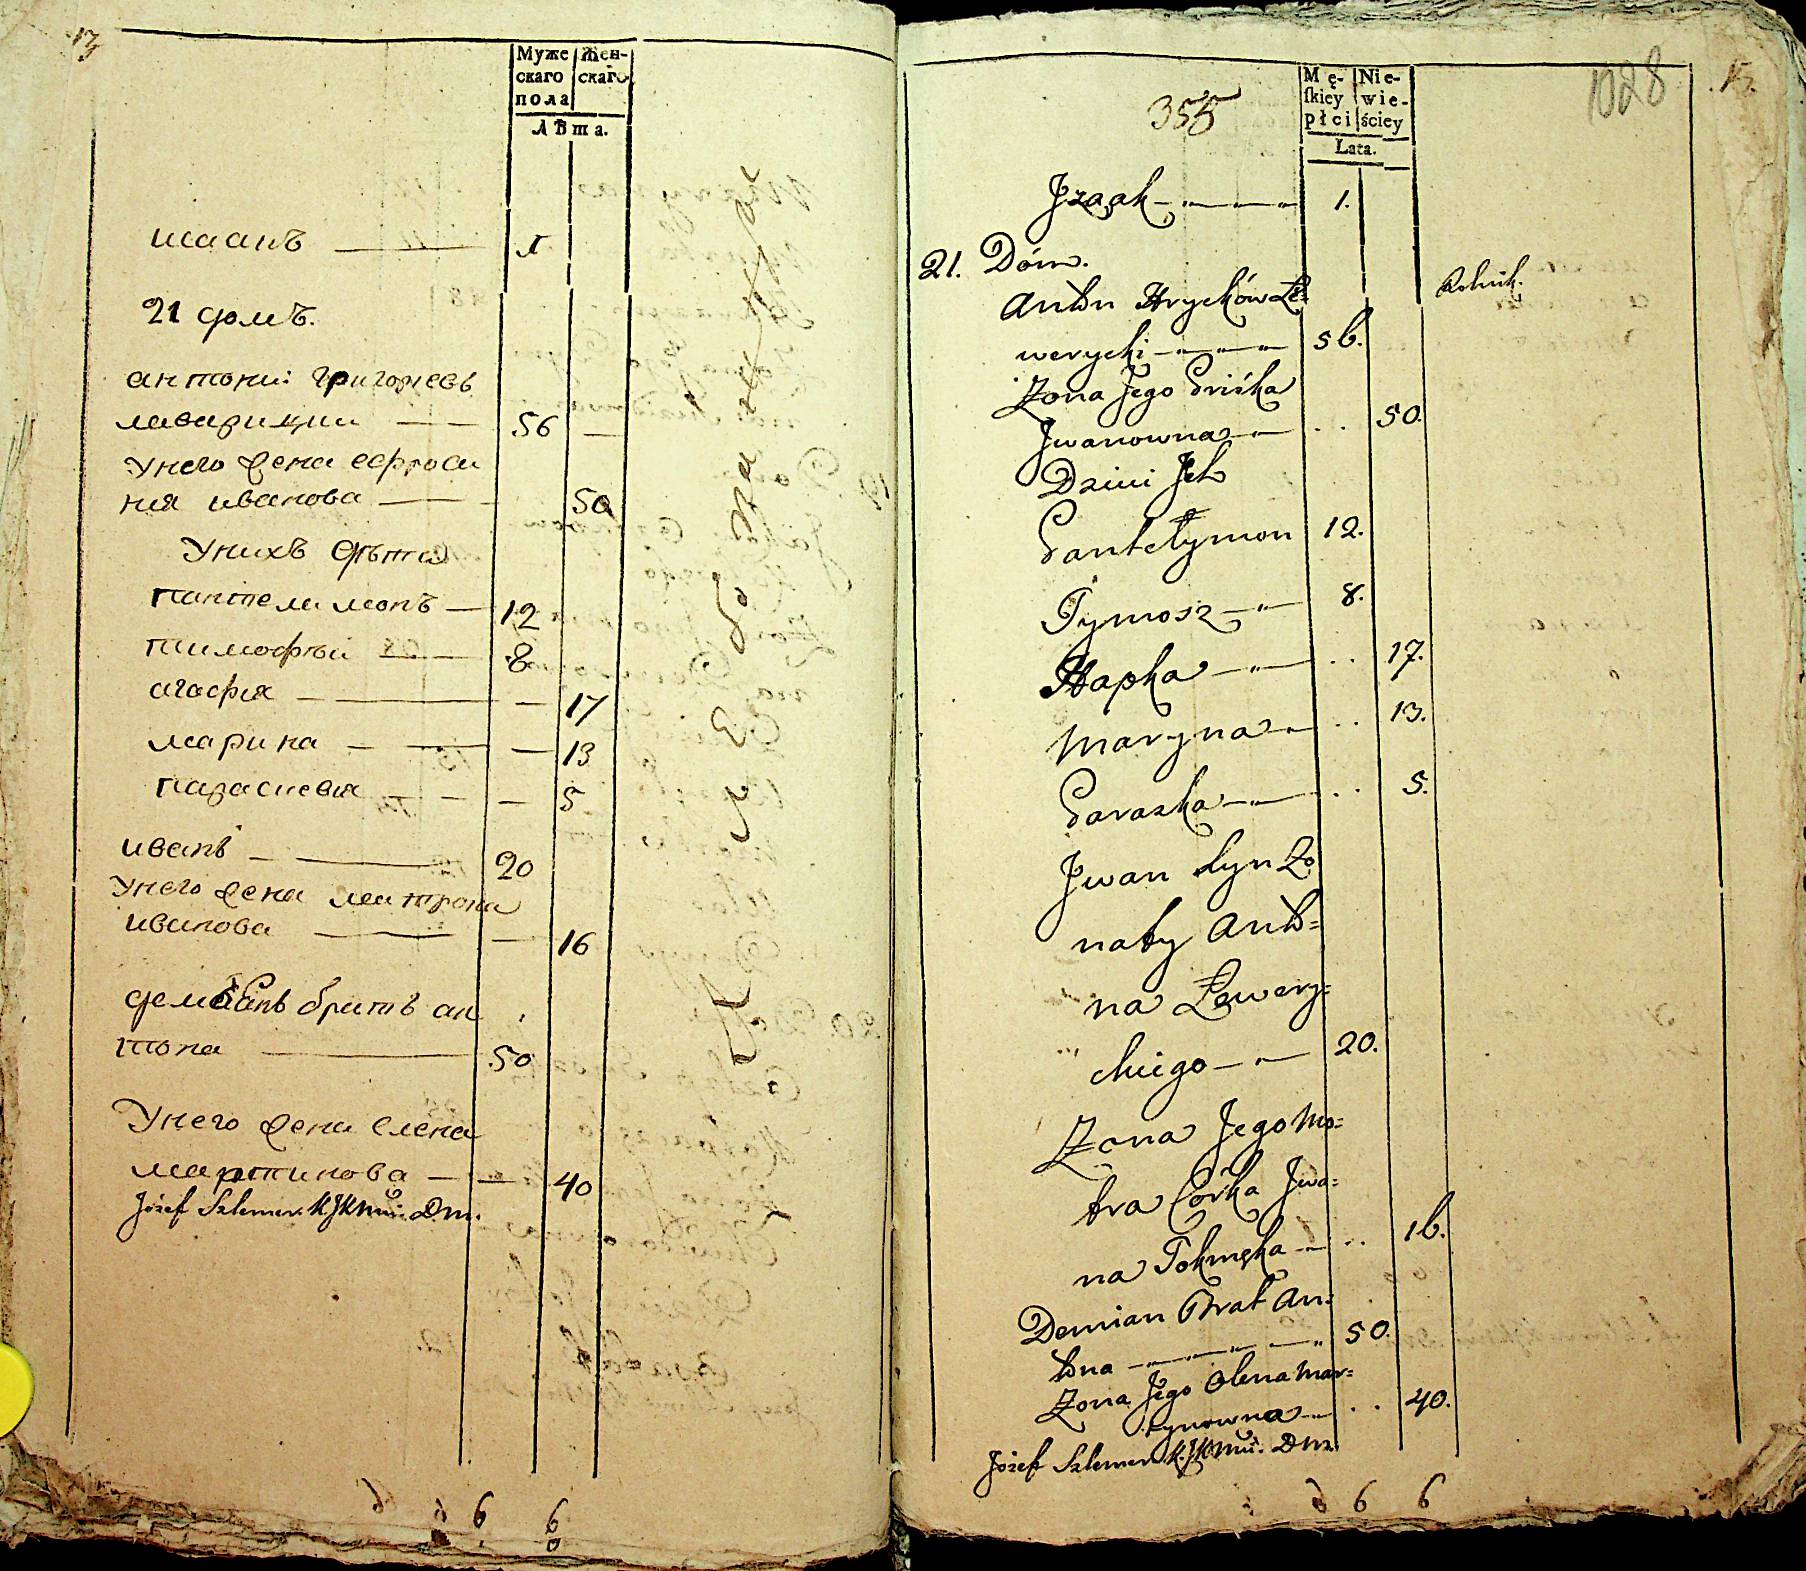 13
Муже
скаго
пола
Жен-
скаго
Лѣта.
исаакъ 1
21 домъ.
антонiй григорьевъ
лаварицкiи 56
Унего жена ефроси
ния иванова 50
Унихъ дѣти
пантелимонъ 12
тимофѣй 8
агафия 17
марина 13
парасковия 5
иванъ 20
Унего жена матрона
иванова 16
демьянъ братъ ан
тона 50
Унего жена елена
мартинова 40
Józef Szlemer K.JKMMci: Dm.
6 6
355
1028
13.
Mę-
skiey
płci
Nie-
wie-
ściey
Lata.
Jzaak 1.
21. Dóm.
Anton Hryćków Ła= Rolnik.
werycki 56.
Zona Jego Priśka
Jwanowna 50.
Dzieci Jch
Pantełymon 12.
Tymosz 8.
Hapka 17.
Maryna 13.
Paraska 5.
Jwan syn Zo
naty Anto=
na Ławery=
ckiego 20.
Zona Jego Mo=
tra Córka Jwa=
na Tokmęka 16.
Demian Brat An=
tona 50.
Zona Jego Olena Mar=
tynowna 40.
Józef Szlemer K.JKMMci: Dm.
6 6